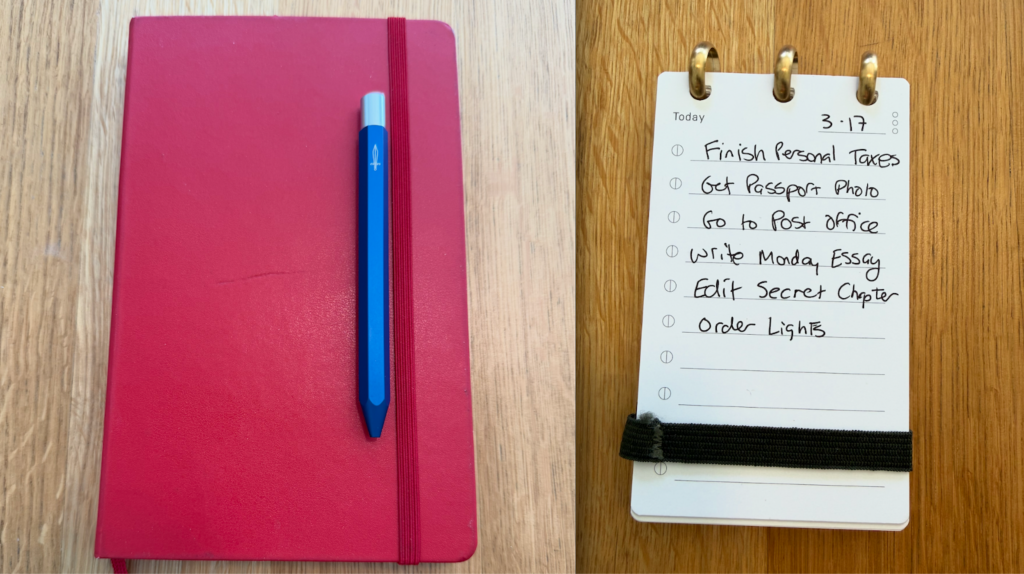 Today
3·17
Finish Personal Taxes
Get Passport Photo
Go to Post Office
Write Monday Essay
Edit Secret Chapter
Order Lights